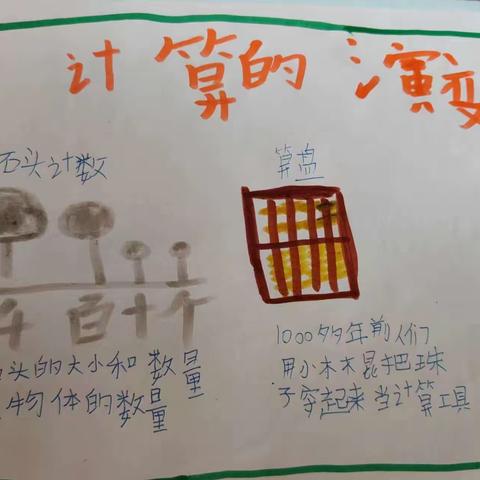 计算的演变
石头计数
千百十个
头的大小和数量
物体的数量
算盘
1000多年前人们
用小木棍把珠
子穿起来当计算工具